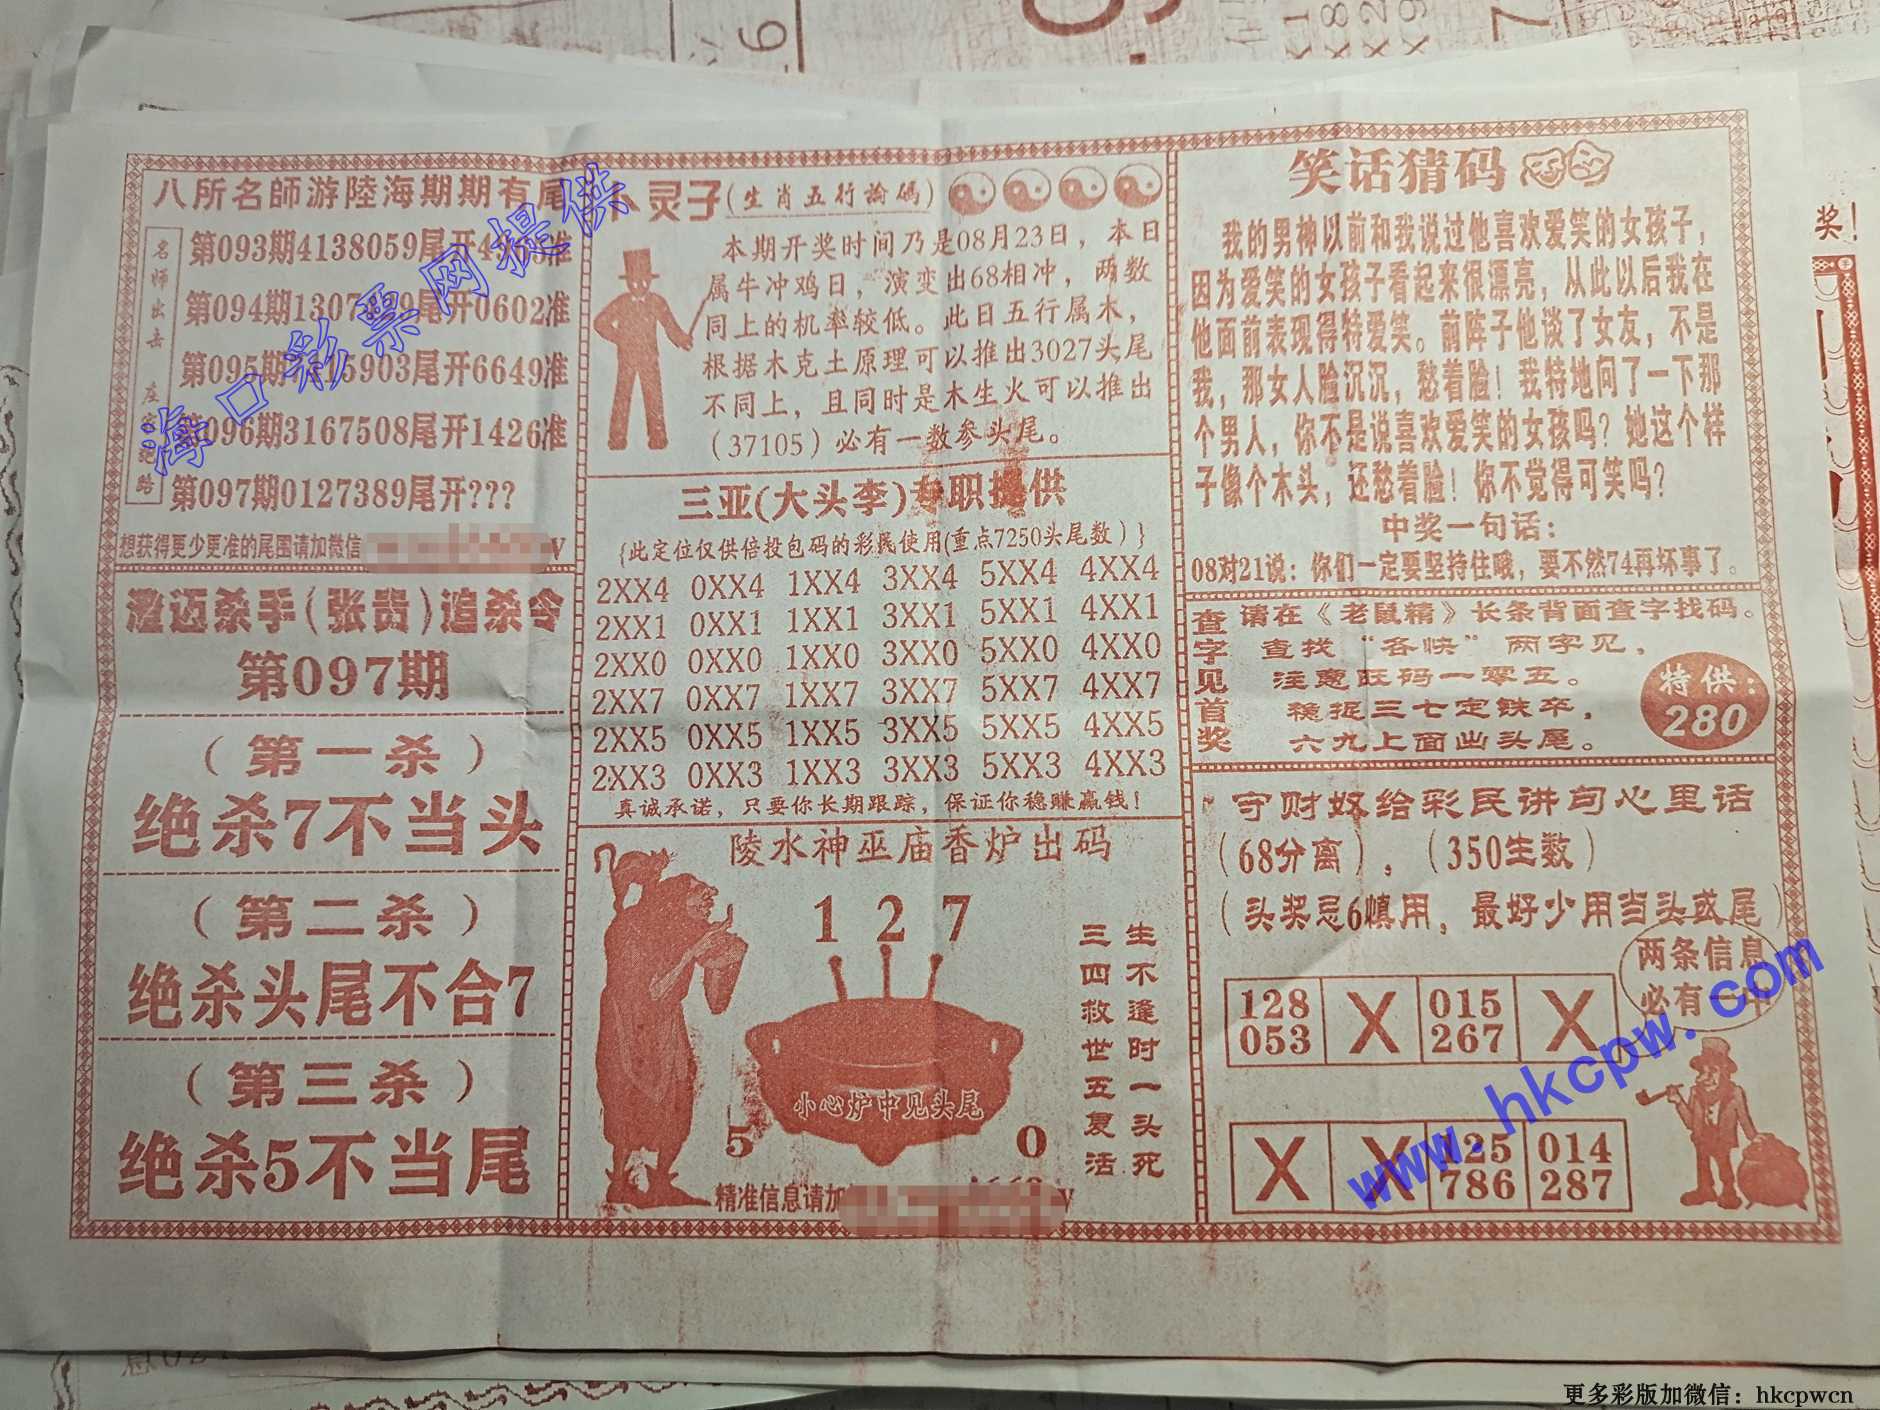 八所名師游陸海期期有尾
名师出击 庄家绝路
第093期4138059尾开4
第094期1307
9尾开0602准
第095期
5903尾开6649准
第096期3167508尾开1426准
第097期0127389尾开???
想获得更少更准的尾围请加微信
澄迈杀手(张贵)追杀令
第097期
(第一杀)
绝杀7不当头
(第二杀)
绝杀头尾不合7
(第三杀)
绝杀5不当尾
卜灵子(生肖五行論碼)
本期开奖时间乃是08月23日，本日
属牛冲鸡日，演变出68相冲，两数
同上的机率较低。此日五行属木，
根据木克土原理可以推出3027头尾
不同上，且同时是木生火可以推出
(37105)必有一数参头尾。
三亚(大头李)专职提供
{此定位仅供倍投包码的彩民使用(重点7250头尾数)}
2XX4 0XX4 1XX4 3XX4 5XX4 4XX4
2XX1 0XX1 1XX1 3XX1 5XX1 4XX1
2XX0 0XX0 1XX0 3XX0 5XX0 4XX0
2XX7 0XX7 1XX7 3XX7 5XX7 4XX7
2XX5 0XX5 1XX5 3XX5 5XX5 4XX5
2XX3 0XX3 1XX3 3XX3 5XX3 4XX3
真诚承诺，只要你长期跟踪，保证你稳赚赢钱！
陵水神巫庙香炉出码
1 2 7
小心炉中见头尾
5
0
生不逢时一头死
三四救世五复活
精准信息请加
笑话猜码
我的男神以前和我说过他喜欢爱笑的女孩子，
因为爱笑的女孩子看起来很漂亮，从此以后我在
他面前表现得特爱笑。前阵子他谈了女友，不是
我，那女人脸沉沉，愁着脸！我特地问了一下那
个男人，你不是说喜欢爱笑的女孩吗？她这个样
子像个木头，还愁着脸！你不觉得可笑吗？
中奖一句话：
08对21说：你们一定要坚持住哦，要不然74再坏事了。
查字见首奖
请在《老鼠精》长条背面查字找码。
查找“各快”两字见，
注意旺码一零五。
稳捉三七定铁卒，
六九上面出头尾。
特供：
280
守财奴给彩民讲句心里话
(68分离)，(350生数)
(头奖忌6慎用，最好少用当头或尾)
两条信息
必有一中
128 X 015 X
053 267
X X 125 014
786 287
海口彩票网提供
www.hkcpw.com
奖！
更多彩版加微信：hkcpwcn